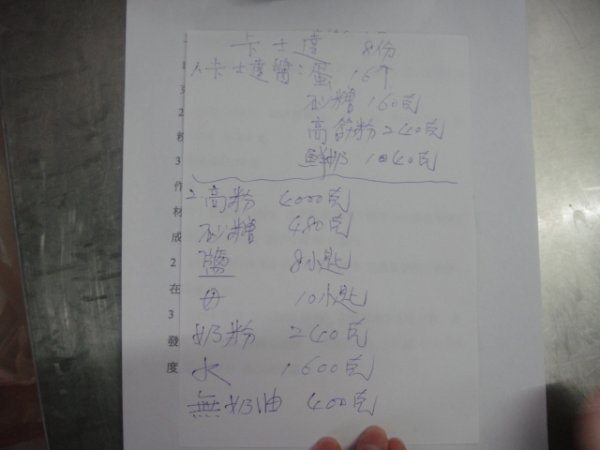 卡士達 8份
1、卡士達醬：蛋 16個
砂糖 160克
高筋粉 240克
鮮奶 1040克
2、高粉 4000克
砂糖 480克
鹽 8小匙
母 10小匙
奶粉 240克
水 1600克
無奶油 400克
2
3
作
材
成
2
在
3
發
度